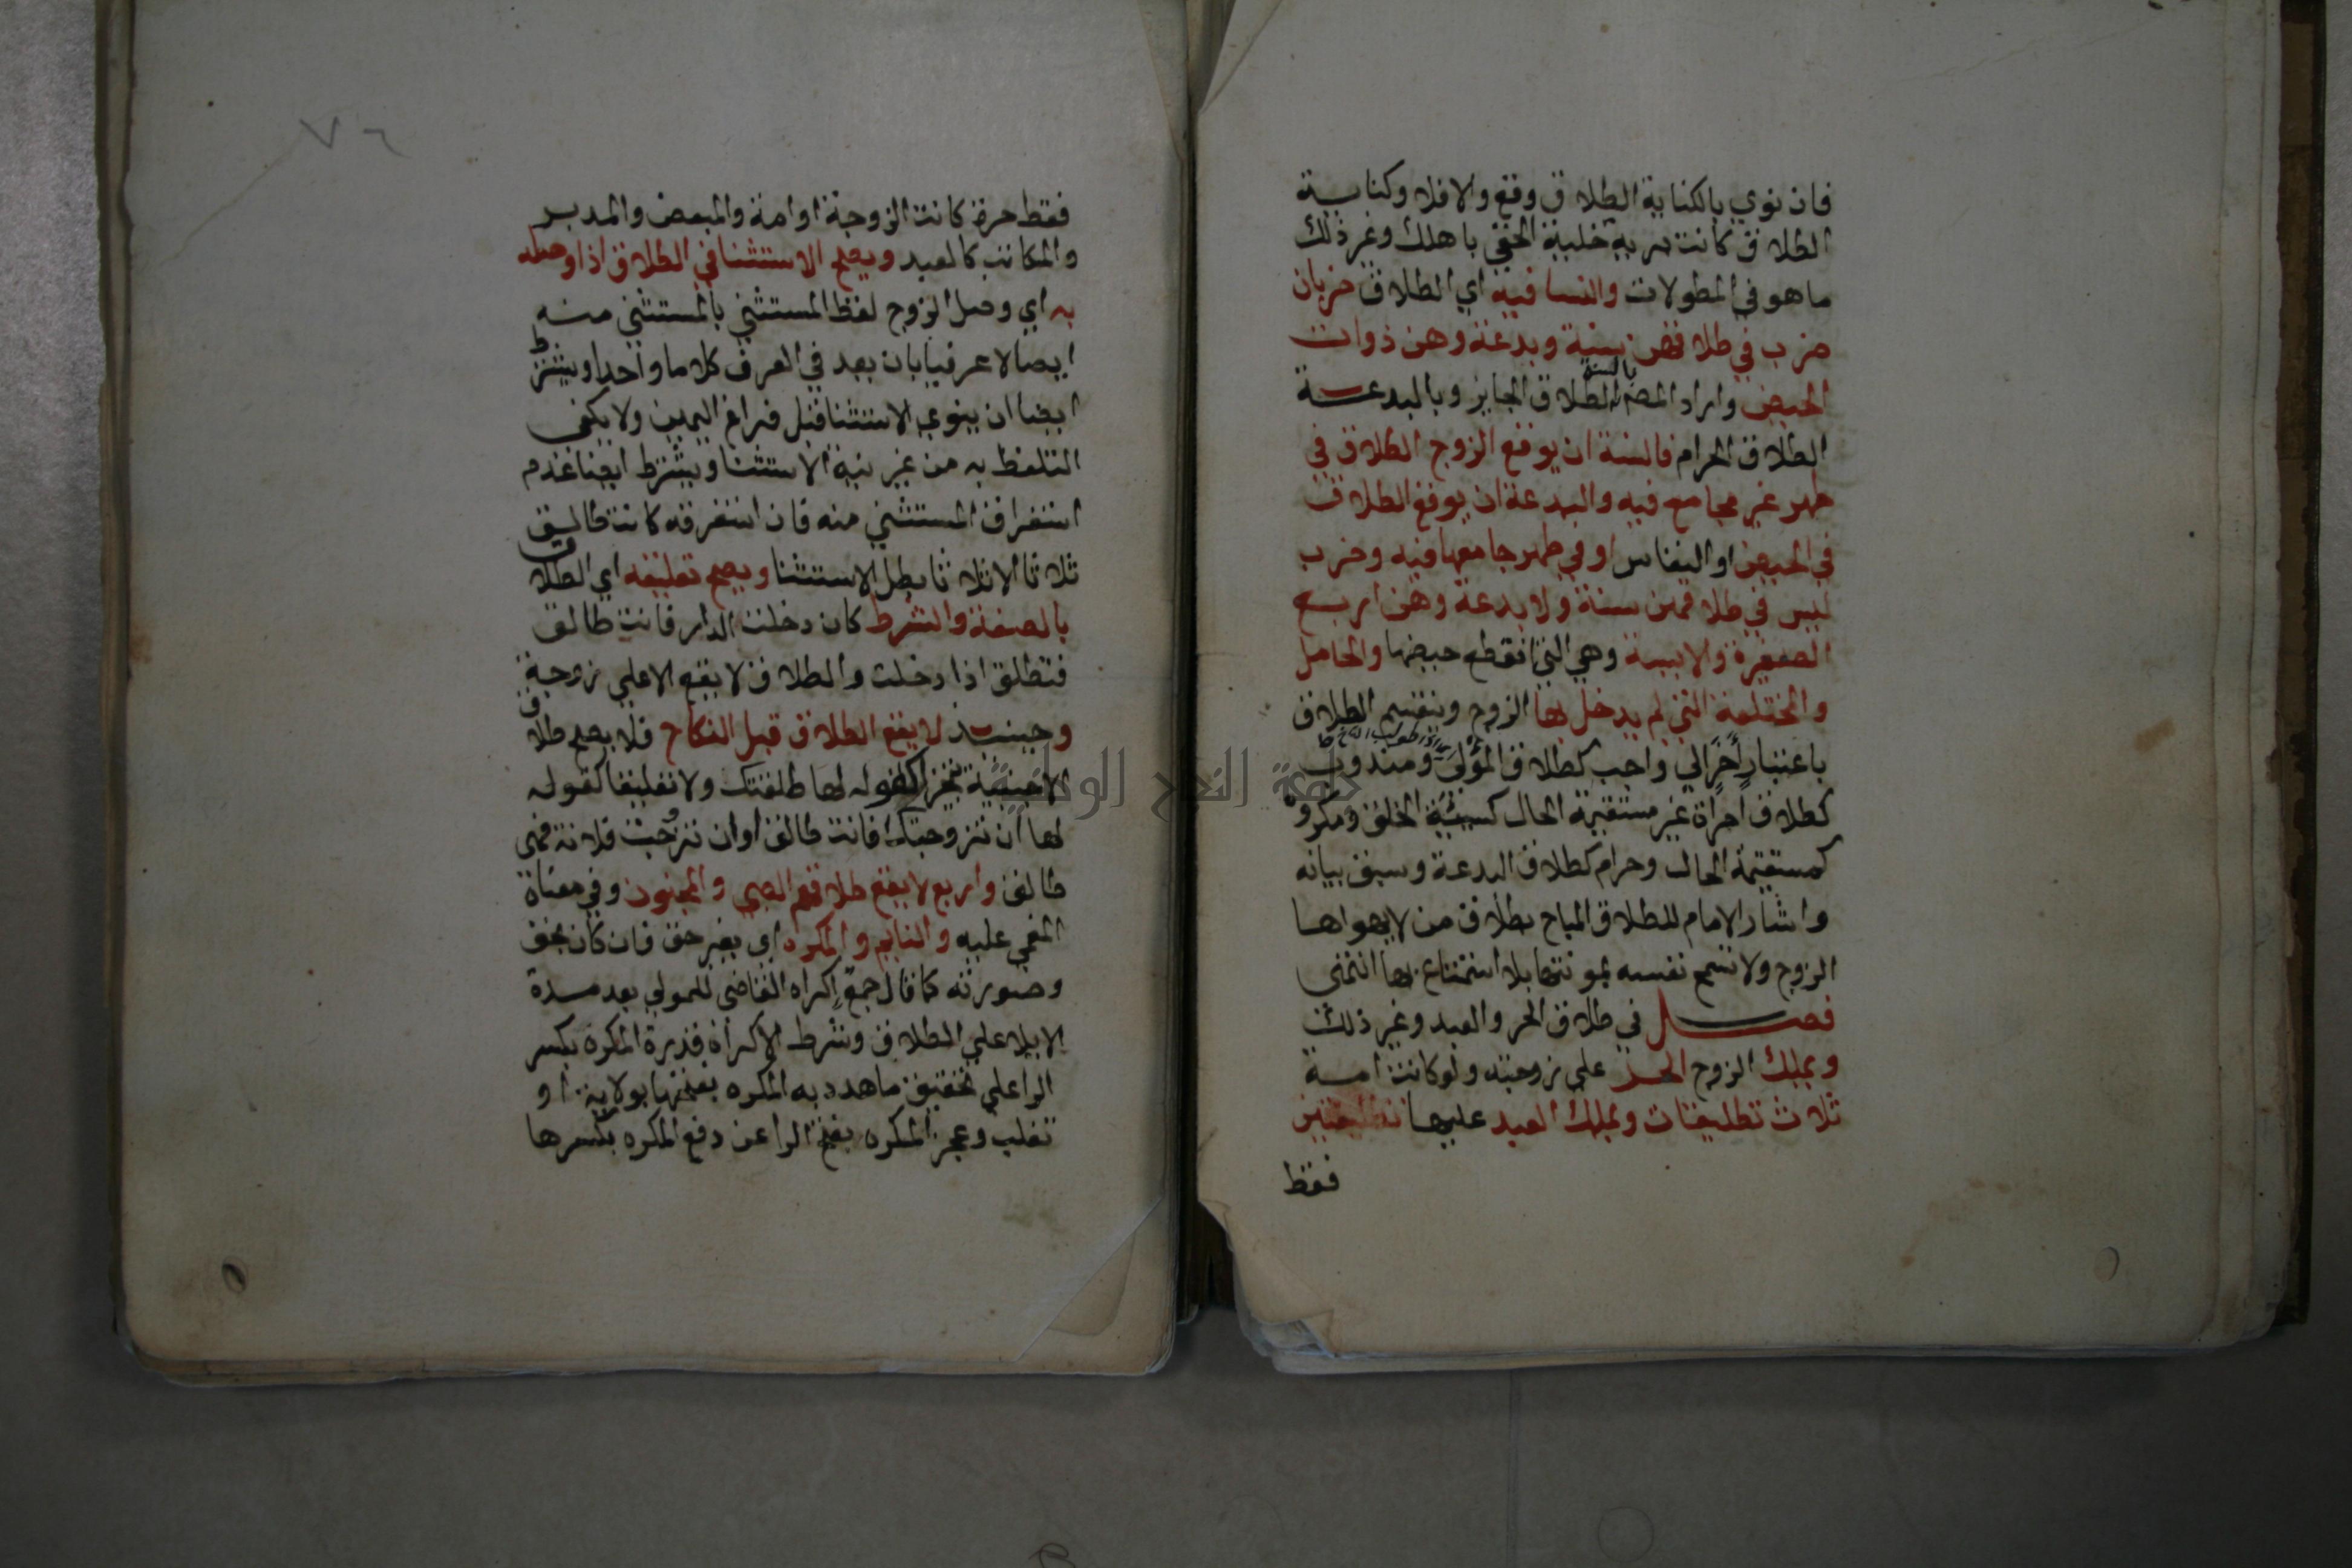 فان نوي بالكناية الطلاق وقع والا فلا وكناية
الطلاق كانت برية خلية الحقي باهلك وغير ذلك
ما هو في المطولات والنسا فيه اي الطلاق ضربان
ضرب في طلاقهن سنة وبدعة وهن ذوات
الحيض واراد المصـ بالسنة الطلاق الجايز وبالبدعة
الطلاق الحرام فالسنة ان يوقع الزوج الطلاق في
طهر غير مجامع فيه والبدعة ان يوقع الطلاق
في الحيض او النفاس او في طهر جامعها فيه وضرب
ليس في طلاقهن سنة ولا بدعة وهن اربع
الصغيرة والايسة وهي التي انقطع حيضها والحامل
والمختلعة التي لم يدخل بها الزوج وينقسم الطلاق
باعتبار أخر الي واجب كطلاق المولي ومندوب
كطلاق امراة غير مستقيمة الحال كسيئة الخلق ومكروه
كمستقيمة الحال وحرام كطلاق البدعة وسبق بيانه
واشار الامام للطلاق المباح بطلاق من لا يهواها
الزوج ولا تسمح نفسه بمونتها بلا استمتاع بها انتهى
فصل في طلاق الحر والعبد وغير ذلك
ويملك الزوج الحر علي زوجته ولو كانت امة
ثلاث تطليقات ويملك العبد عليها تطليقتين
فقط
٧٦
فقط حرة كانت الزوجة او امة والمبعض والمدبر
والمكاتب كالعبد ويصح الاستثنا في الطلاق اذا وصله
به اي وصل الزوج لفظ المستثني بالمستثني منه
ايصالا عرفيا بان يعد في العرف كلاما واحدا ويشترط
ايضا ان ينوي الاستثنا قبل فراغ اليمين ولا يكفي
التلفظ به من غير نية الاستثنا ويشترط ايضا عدم
استغراق المستثني منه فان استغرقه كانت طالق
ثلاثا الا ثلاثا بطل الاستثنا ويصح تعليقه اي الطلاق
بالصفة والشرط كان دخلت الدار فانت طالق
فتطلق اذا دخلت والطلاق لا يقع الا علي زوجة
وحينئذ لا يقع الطلاق قبل النكاح فلا يصح طلاق
الاجنبية تنجيزا كقوله لها طلقتك ولا تعليقا كقوله
لها ان تزوجتك فانت طالق او ان تزوجت فلانة فهي
طالق واربع لا يقع طلاقهم الصبي والمجنون وفي معناة
المغمي عليه والنايم والمكره اي بغير حق فان كان بحق
وصورته كما قال جمع اكراه القاضي للمولي بعد مدة
الايلا علي الطلاق وشرط الاكراه قدرة المكره بكسر
الرا علي تحقيق ما هدد به المكره بفتحها بولاية او
تغلب وعجز المكره بفتح الرا عن دفع المكره بكسرها
جامعة النجاح الوطنية